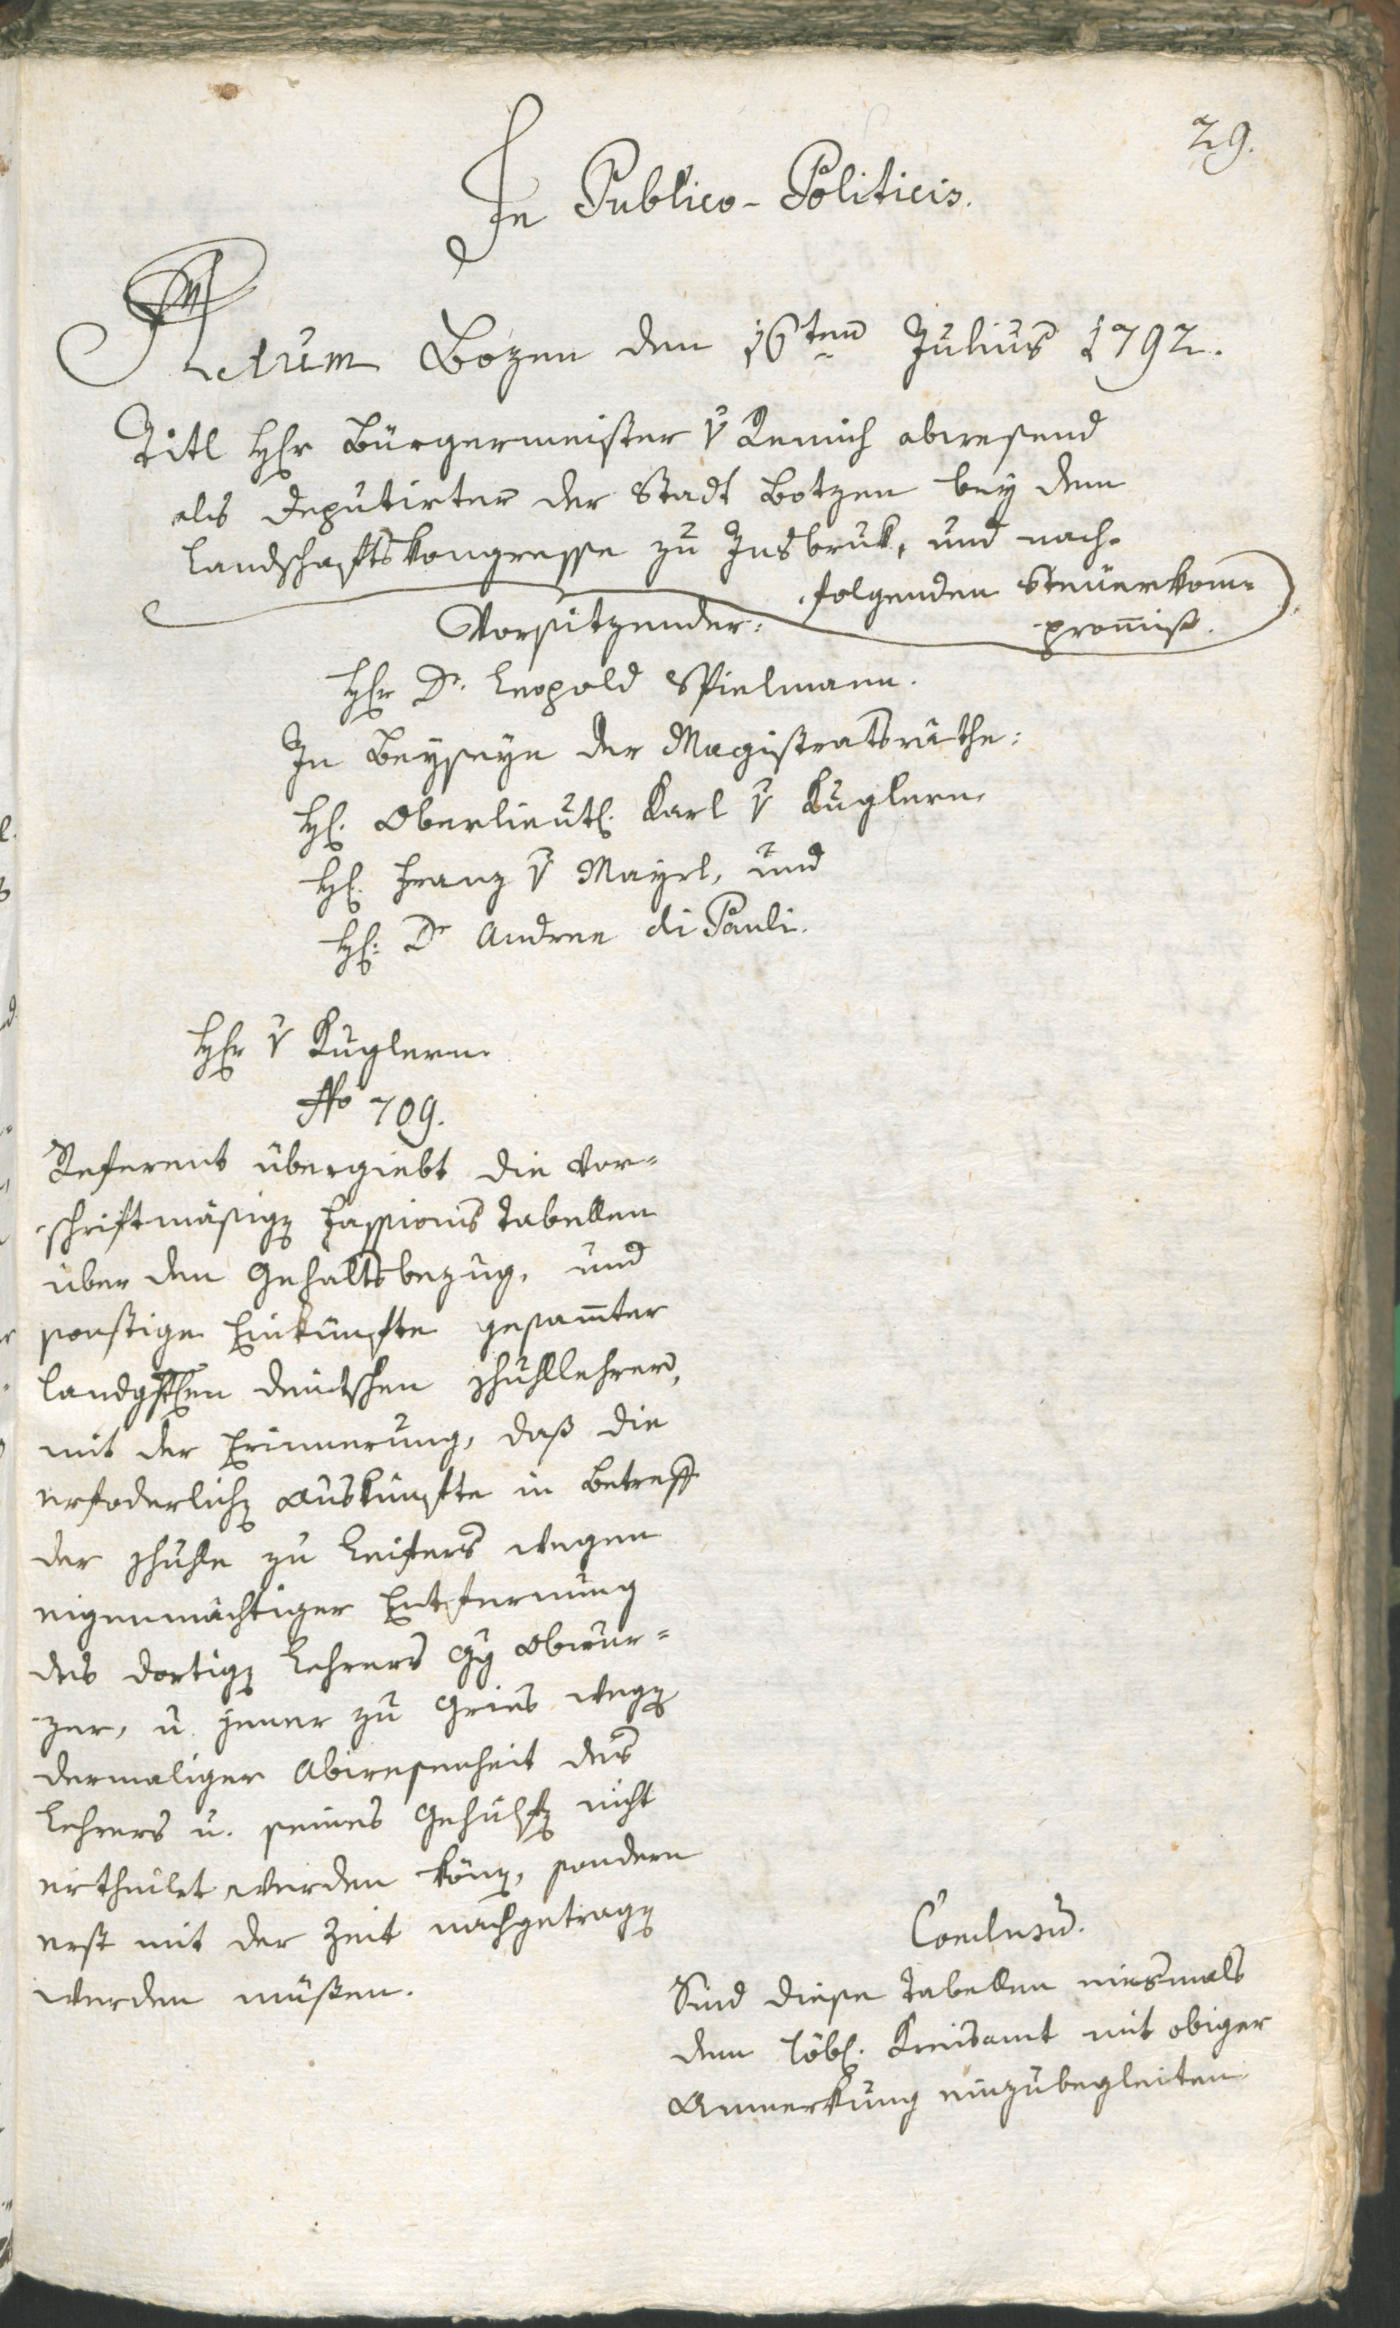 29.
In Publico-Politicis.
Actum Bozen den 16ten Julius 1792.
Titl Hr Bürgermeister v Remich abwesend
als Deputirter der Stadt Botzen bey dem
Landschaftskongresse zu Insbruk, und nach-
folgenden Steuerkom-
promiß.
Vorsitzender:
Hr Dr. Leopold Spielmann.
In Beyseyn der Magistratsräthe:
H. Oberlieut. Karl v Kuglern
H. Franz v Mayrl, und
H: Dr Andree di Pauli.
Hr v Kuglern
No 709.
Referent übergiebt die vor-
schriftmäßigen Fassions Tabellen
über den Gehaltsbezug, und
sonstige Einkünfte gesamter
Landgchtlen deutschen Schullehrer,
mit der Erinnerung, daß die
erfoderlichen Auskünfte in Betreff
der Schule zu Leifers wegen
eigenmächtiger Entfernung
des dortigen Lehrers Gg Obwur-
zer, u. jener zu Gries wegen
dermaliger Abwesenheit des
Lehrers u. seines Gehülfen nicht
ertheilet werden könen, sondern
erst mit der Zeit nachgetragen
werden müßen.
Conclusū.
Sind diese Tabellen einsmals
dem löbl. Kreisamt mit obiger
Anmerkung einzubegleiten